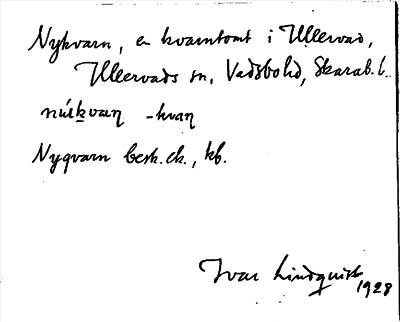 Nykvarn, en kvarntomt i Ullervad,
Ullervads sn, Vadsbohd, Skarab. l.
núıkvaɳ -kvaɳ
Nyqvarn besk. ek., kb.
Ivar Lindquist
1928